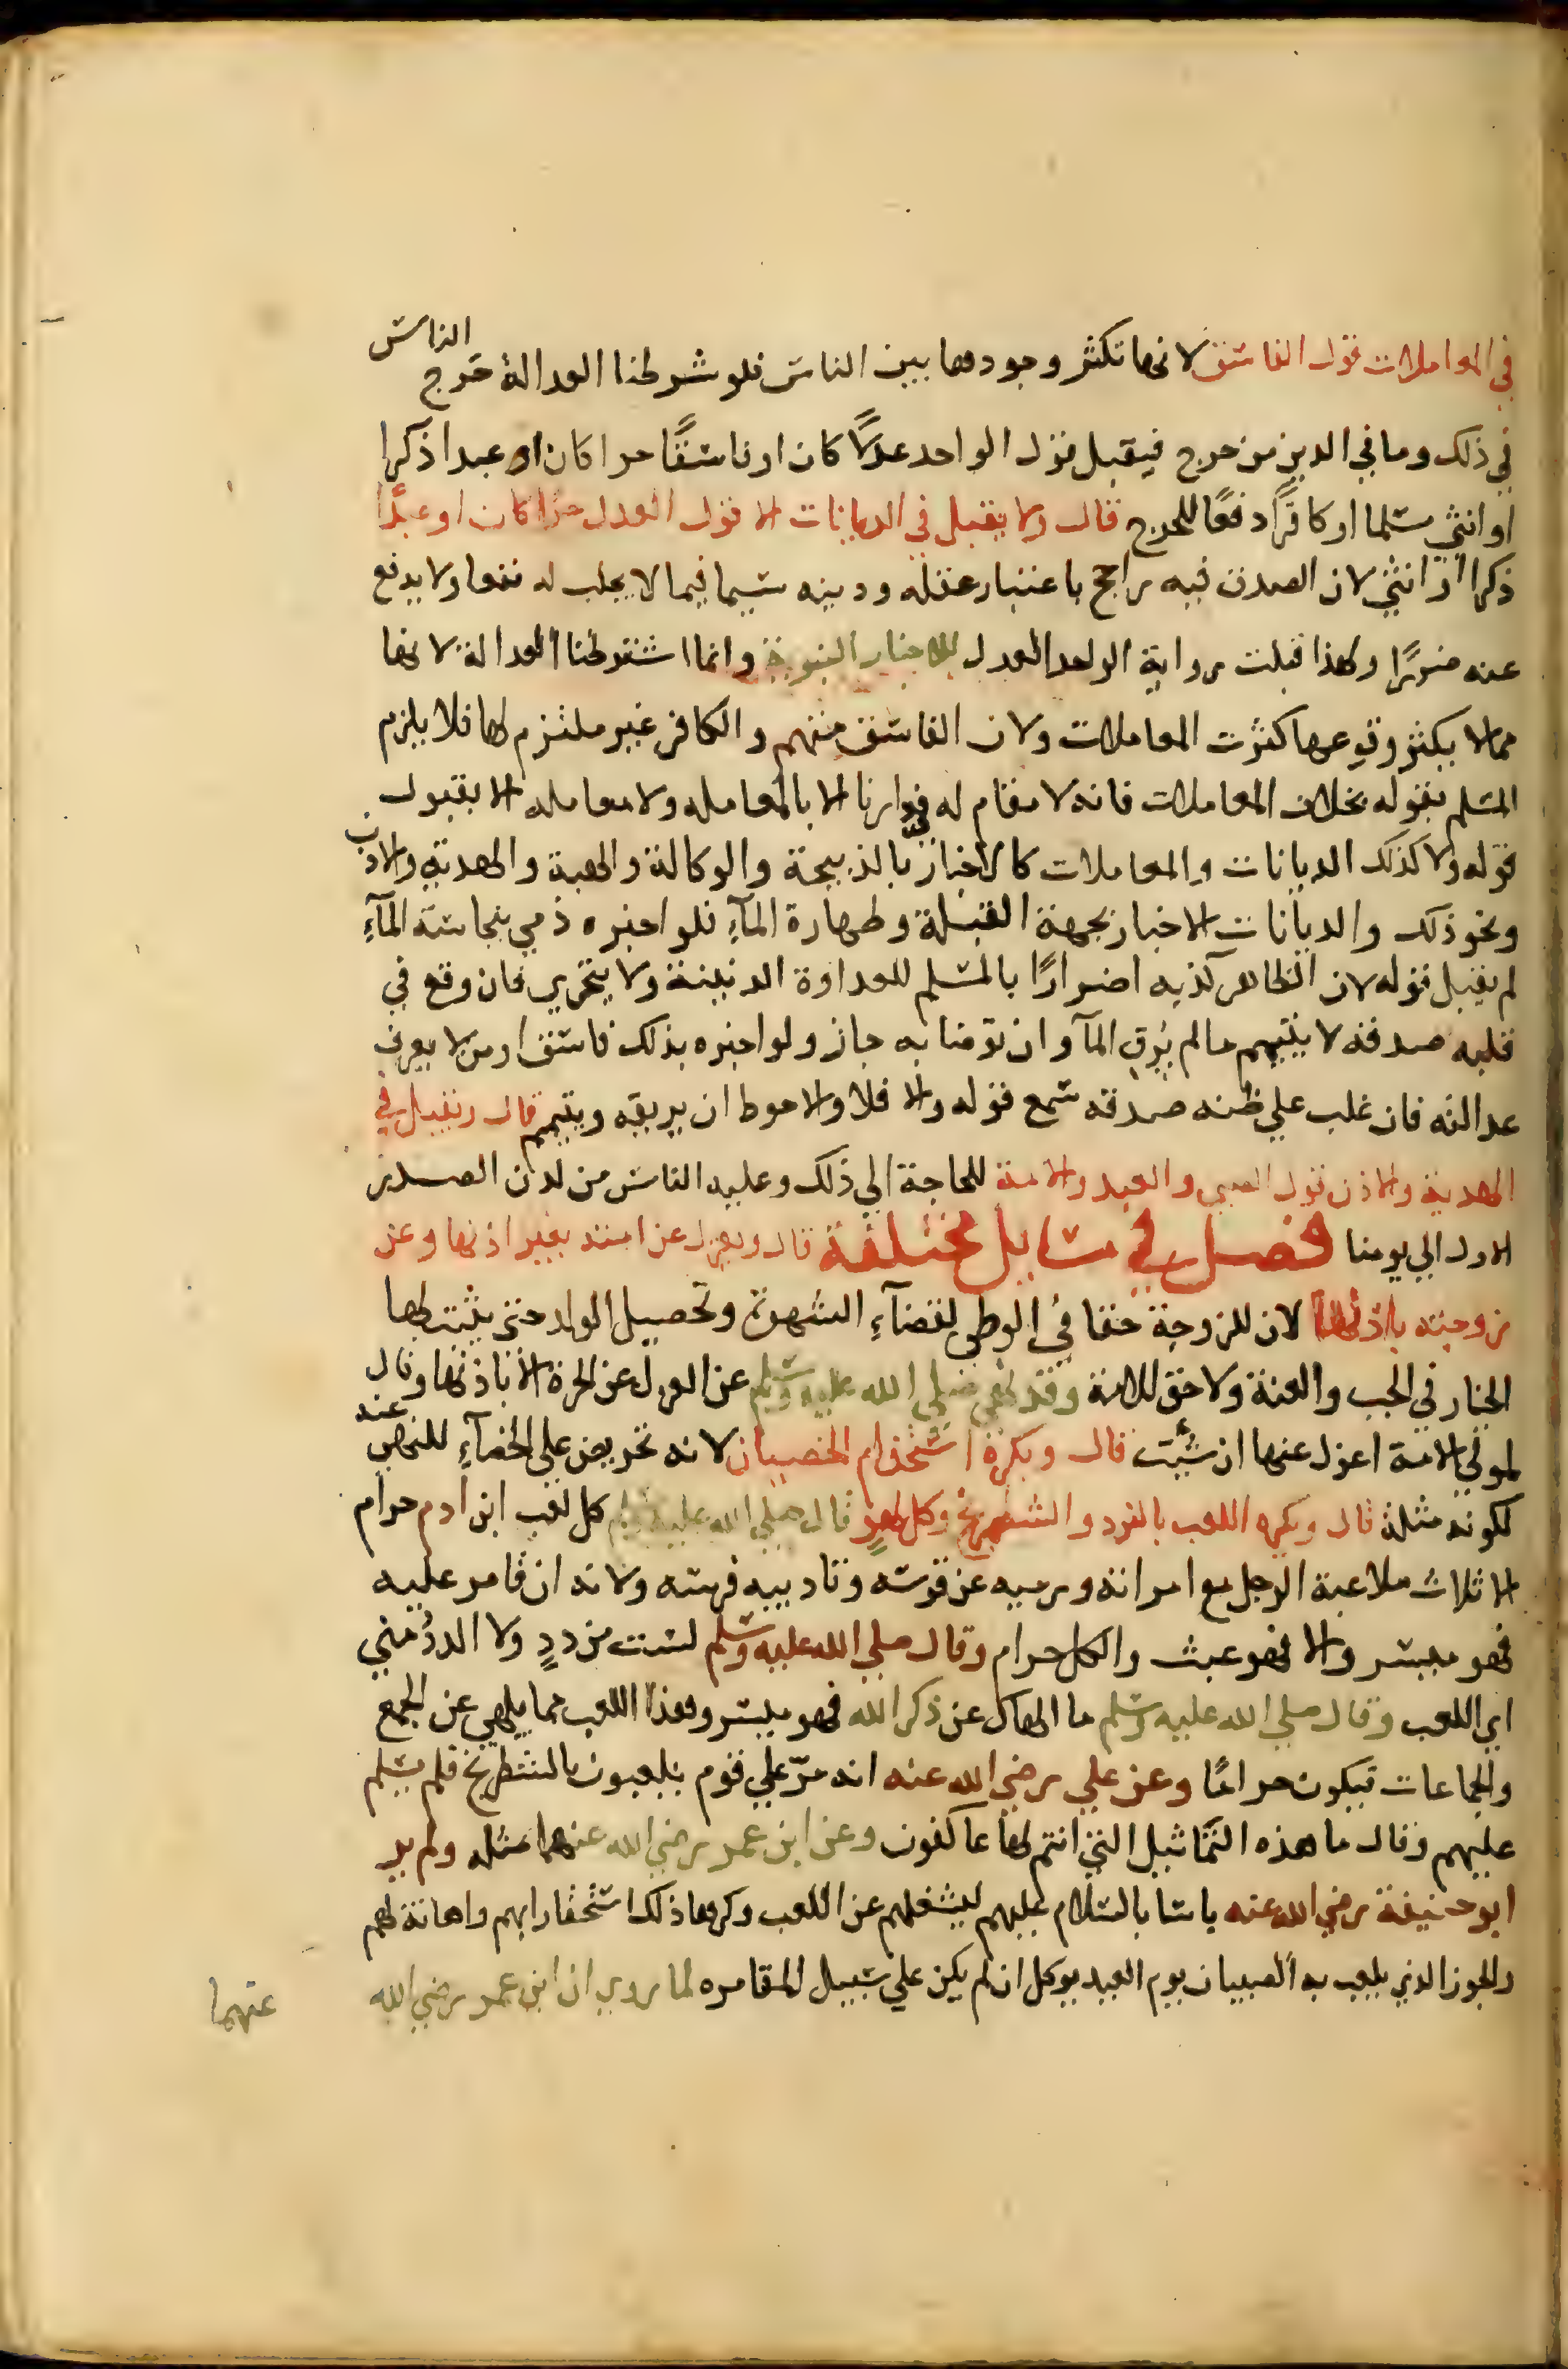 في المعاملات قول الفاسق لانها تكثر وجودها بين الناس فلو شرطنا العدالة حرج الناس
في ذلك وما في الدين من حرج فيقبل قول الواحد عدلًا كان او فاسقًا حرا كان او عبدا ذكرا
او انثي مسلما او كافرًا دفعًا للحرج قال ولا يقبل في الديانات الا قول العدل حرًا كان او عبدًا
ذكرا او انثي لان الصدق فيه راجح باعتبار عقله ودينه سيما فيما لا يجلب له نفعا ولا يدفع
عنه ضررًا ولهذا قبلت رواية الواحد العدل للاخبار النبوية وانما اشترطنا العدالة لانها
مما لا يكثر وقوعها كثرت المعاملات ولان الفاسق متهم والكافر غير ملتزم لها فلا يلزم
المسلم بقوله بخلاف المعاملات فانه لا مقام له في دارنا الا بالمعامله ولا معامله الا بقبول
قوله ولا كذلك الديانات والمعاملات كالاخبار بالذبيحة والوكالة والهبة والهدية والاذن
ونحو ذلك والديانات الاخبار بجهة القبلة وطهارة المآءِ فلو اخبره ذمي بنجاسة المآءِ
لم يقبل قوله لان الظاهر كذبه اضرارًا بالمسلم للعداوة الدينية ولا يتحري فان وقع في
قلبه صدقه لا يتيمم ما لم يُرق المآ وان توضا به جاز ولو اخبره بذلك فاسق او من لا يعرف
عدالته فان غلب علي ظنه صدقه سمع قوله والا فلا والاحوط ان يريقه ويتيمم قال ويقبل في
الهدية والاذن قول الصبي والعبد والامة للحاجة الي ذلك وعليه الناس من لدن الصدر
الاول الي يومنا فصل في مسايل مختلفة قال ويعزل عن امته بغير اذنها وعن
زوجته باذنها لان للزوجة حقا في الوطي لقضآءِ الشهوة وتحصيل الولد حتي يثبت لها
الخيار في الجب والعنة ولا حق للامة وقد نهي صلي الله عليه وسلم عن العزل عن الحرة الا باذنها وقال
لمولي الامة اعزل عنها ان شئت قال ويكره استخدام الخصيان لانه تحريض علي الخصآءِ للنهي عنه
لكونه مثلة قال ويكره اللعب بالنرد والشطرنج وكل لهوٍ قال صلي الله عليه وسلم كل لعب ابن ادم حرام
الا ثلاث ملاعبة الرجل مع امراته ورميه عن قوسه وتاديبه فرسه ولانه ان قامر عليه
فهو ميسر والا فهو عبث والكل حرام وقال صلي الله عليه وسلم لست من ددٍ ولا الددُ مني
اي اللعب وقال صلي الله عليه وسلم ما الهاك عن ذكر الله فهو ميسر وهذا اللعب مما يلهي عن الجمع
والجماعات فيكون حرامًا وعن علي رضي الله عنه انه مرّ علي قوم يلعبون بالشطرنج فلم يسلم
عليهم وقال ما هذه التماثيل التي انتم لها عاكفون وعن ابن عمر رضي الله عنهما مثله ولم ير
ابو حنيفة رضي الله عنه باسا بالسلام عليهم ليشغلهم عن اللعب وكرها ذلك استحقارا بهم واهانة لهم
والجوز الذي يلعب به الصبيان يوم العيد يوكل ان لم يكن علي سبيل المقامره لما روي ان ابن عمر رضي الله
عنهما